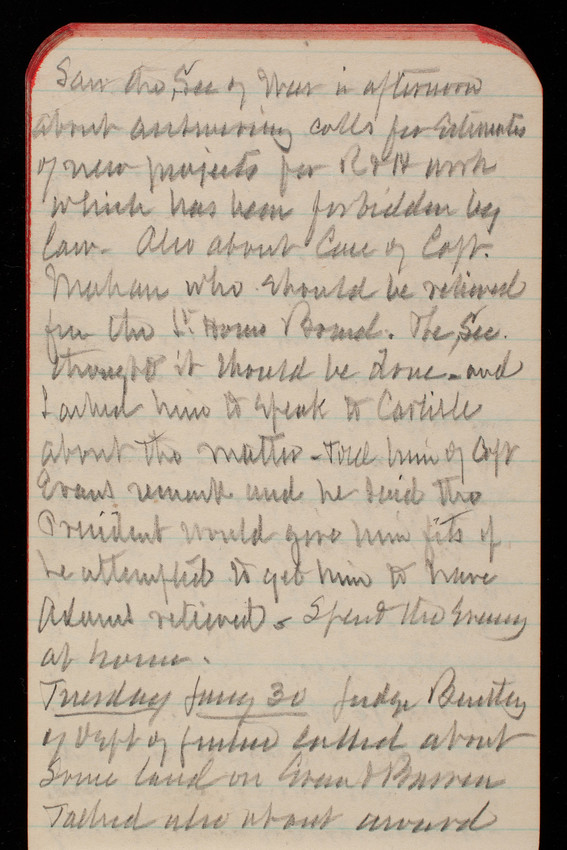 Saw the Sec of War in afternoon
about answering calls for Estimates
of new projects for R & H work
which has been forbidden by
law. Also about Case of Capt.
Mahan who should be relieved
from the Lt House Board. The Sec.
thought it should be done - and
I asked him to speak to Carlisle
about the matter - Told him of Capt
Evans remark and he said the
President would give him fits if
he attempted to get him to have
Adams relieved - Spend the Evening
at home.
Tuesday Jany 30 Judge Bentley
of Dept of Justice called about
Some land on Grand
Talked also about award